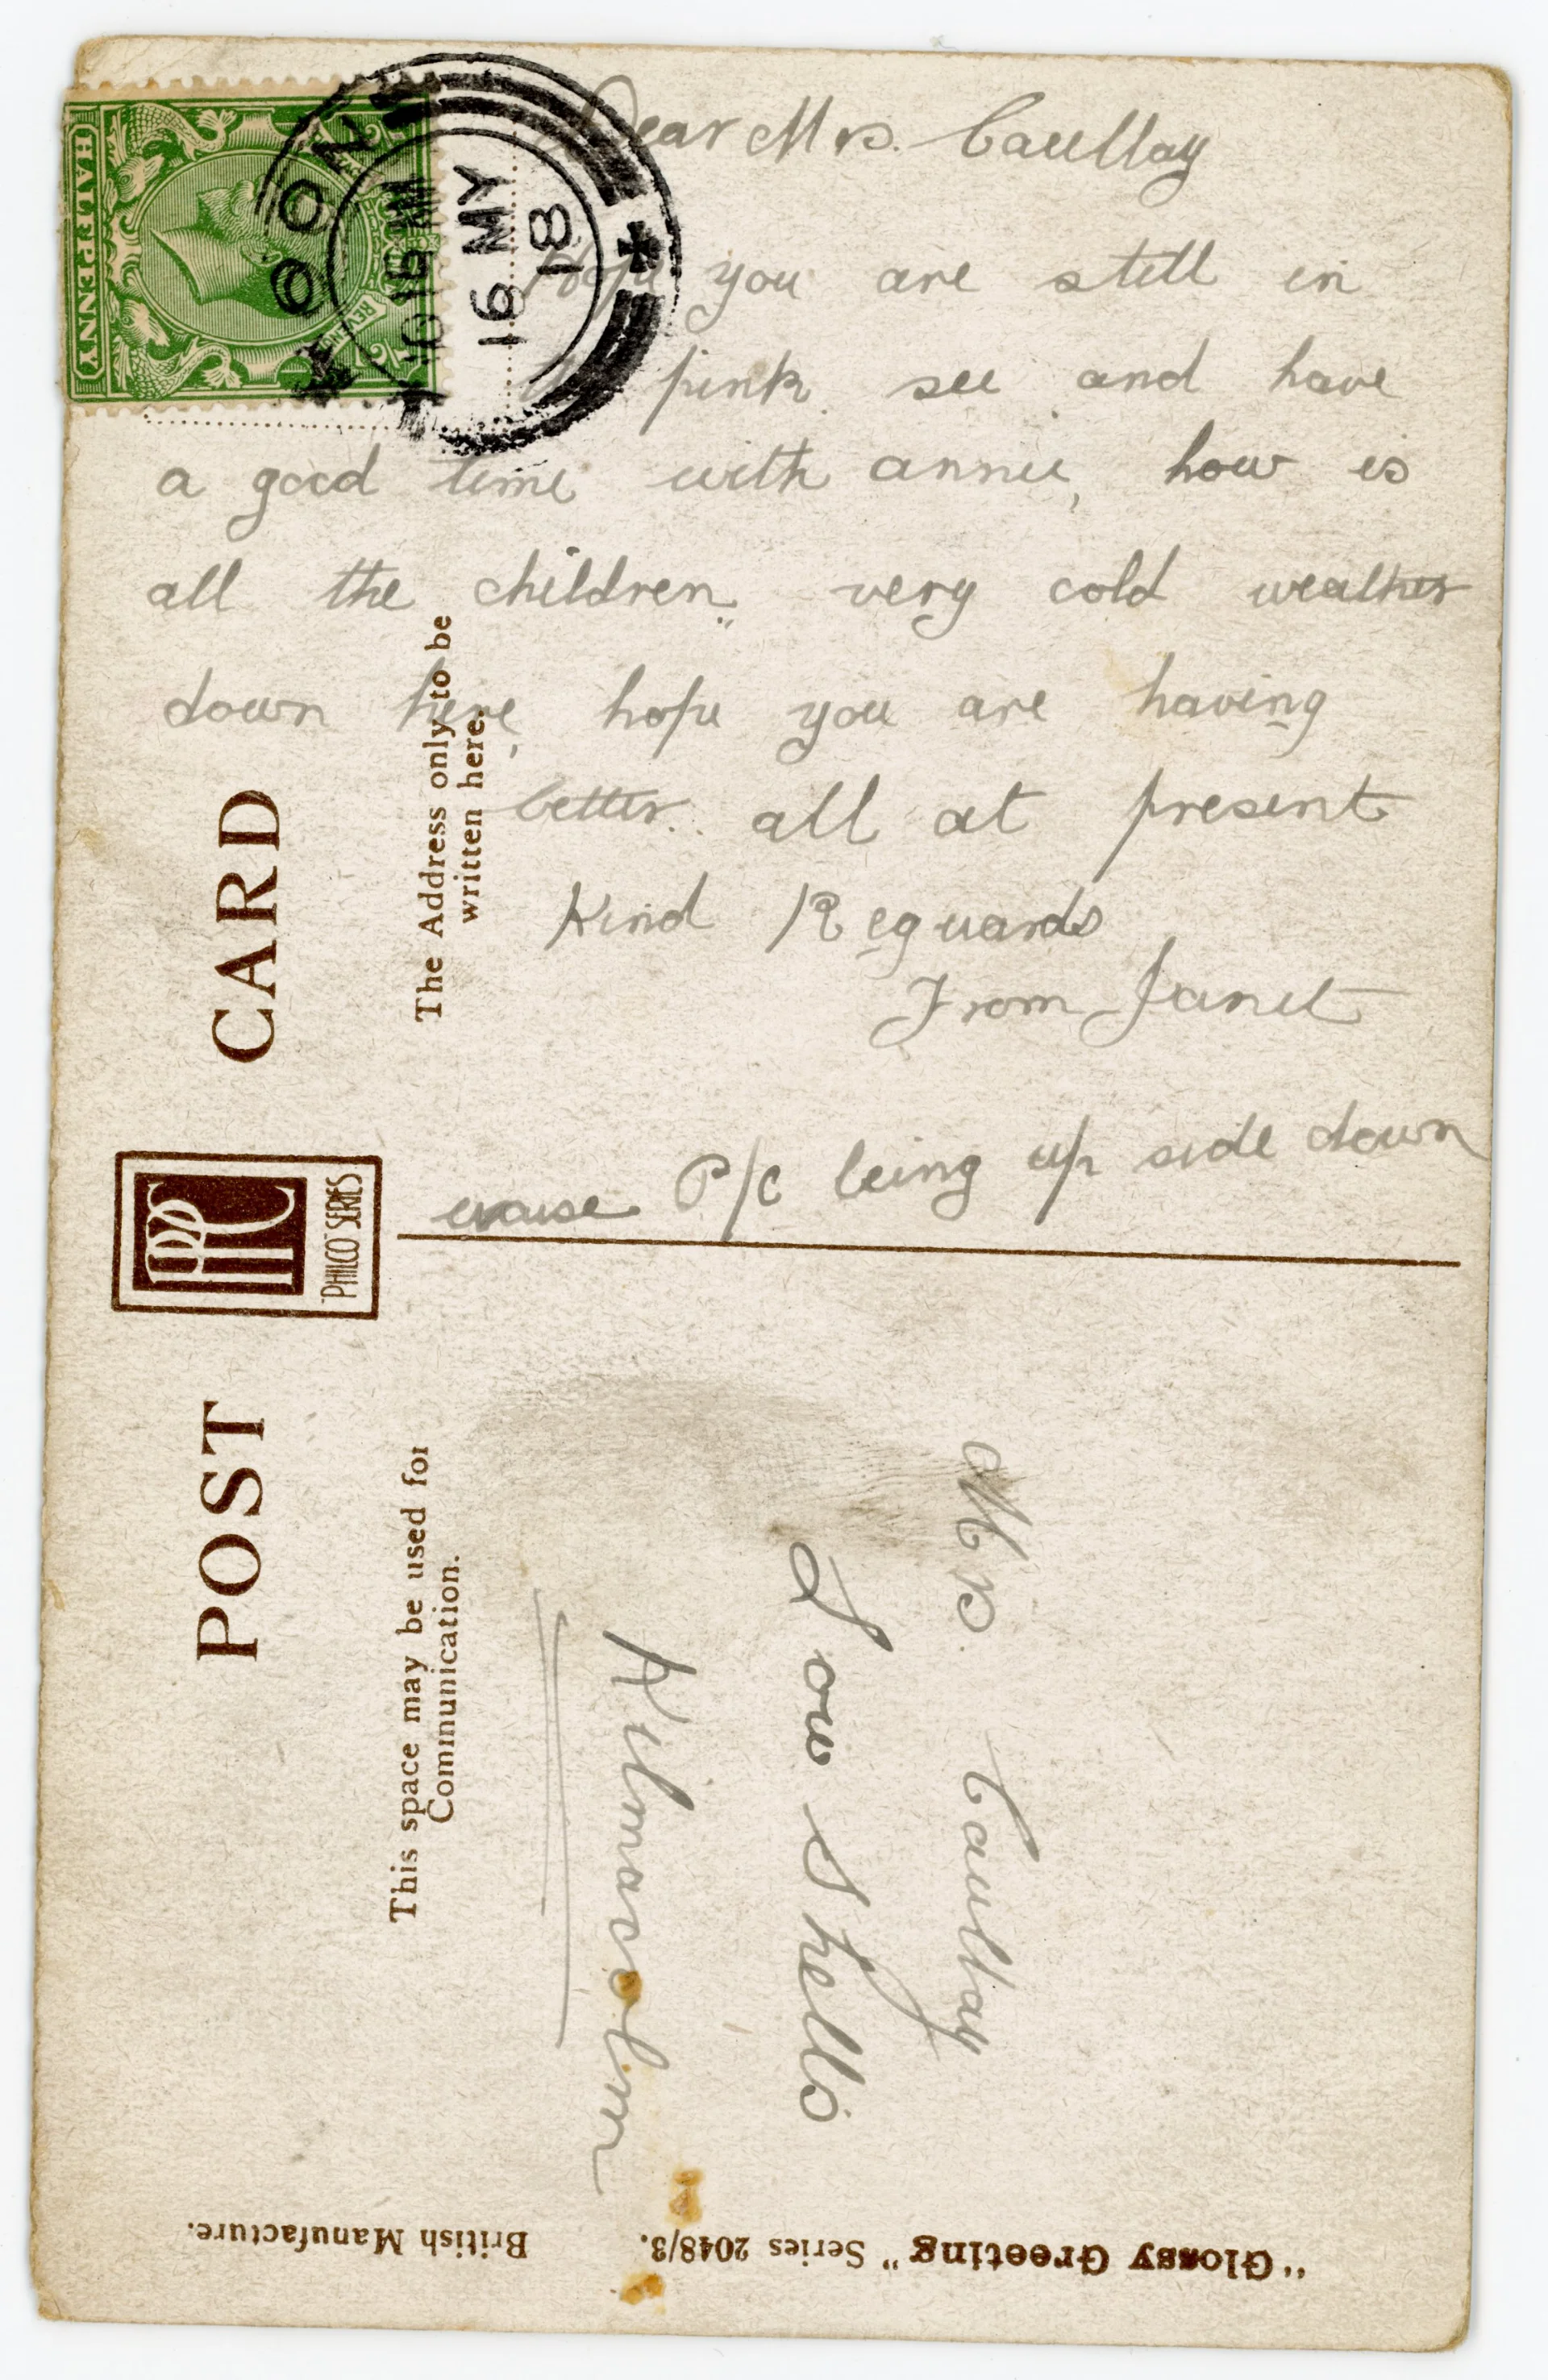 Dear Mrs. Caullay
Hope you are still in
pink see and have
a good time with annie, how is
all the children. very cold weather
down here, hope you are having
better. all at present
Kind Reguards
From Janet
P/c being up side down
Mrs. Caullay
Low Shells
POST CARD
"PHILCO" SERIES
The Address only to be
written here.
This space may be used for
Communication.
"Glossy Greeting" Series 2048/3.
British Manufacture.
HALFPENNY
REVENUE
16 MY
18